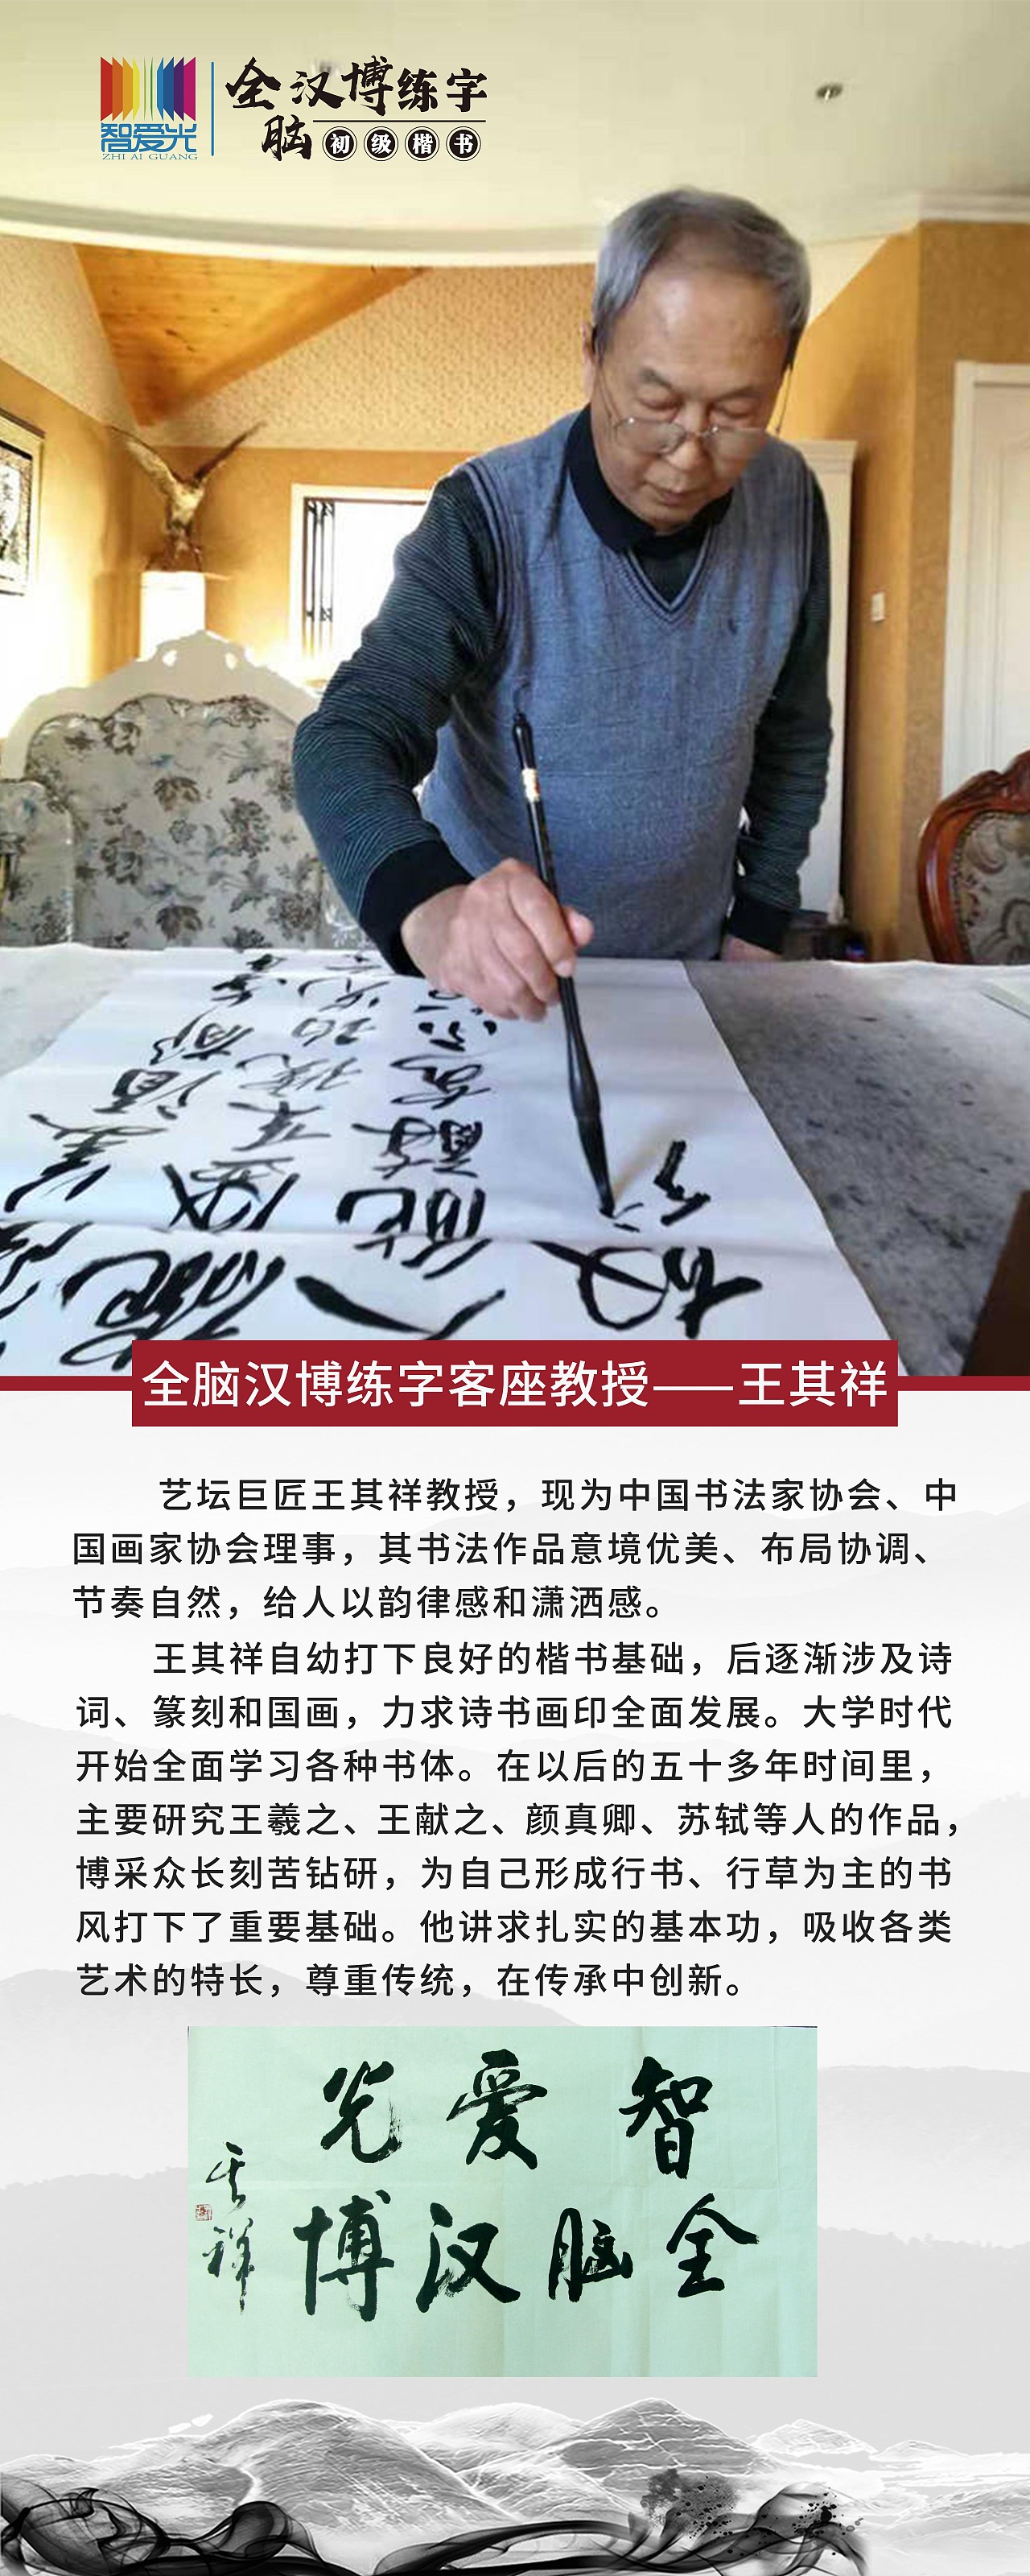 智爱光
ZHI AI GUANG
全脑汉博练字
初级楷书
全脑汉博练字客座教授——王其祥
艺坛巨匠王其祥教授，现为中国书法家协会、中
国画家协会理事，其书法作品意境优美、布局协调、
节奏自然，给人以韵律感和潇洒感。
王其祥自幼打下良好的楷书基础，后逐渐涉及诗
词、篆刻和国画，力求诗书画印全面发展。大学时代
开始全面学习各种书体。在以后的五十多年时间里，
主要研究王羲之、王献之、颜真卿、苏轼等人的作品，
博采众长刻苦钻研，为自己形成行书、行草为主的书
风打下了重要基础。他讲求扎实的基本功，吸收各类
艺术的特长，尊重传统，在传承中创新。
智爱光
全脑汉博
其祥